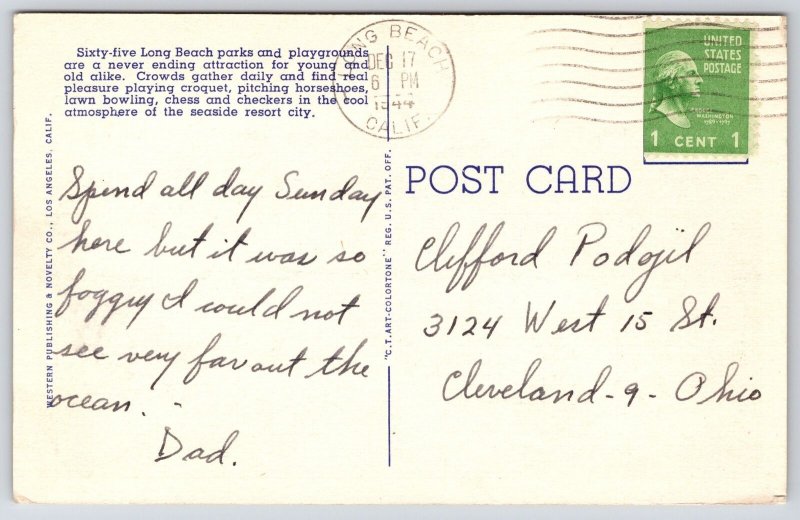 Sixty-five Long Beach parks and playgrounds
are a never ending attraction for young and
old alike. Crowds gather daily and find real
pleasure playing croquet, pitching horseshoes,
lawn bowling, chess and checkers in the cool
atmosphere of the seaside resort city.
LONG BEACH
DEC 17
6 PM
1944
CALIF.
UNITED
STATES
POSTAGE
GEORGE
WASHINGTON
1789-1797
1 CENT 1
WESTERN PUBLISHING & NOVELTY CO., LOS ANGELES, CALIF.
Spend all day Sunday
here but it was so
foggy I could not
see very far out the
ocean. -
Dad.
"C.T. ART-COLORTONE" REG. U.S. PAT. OFF.
POST CARD
Clifford Podojil
3124 West 15 St.
Cleveland-9- Ohio